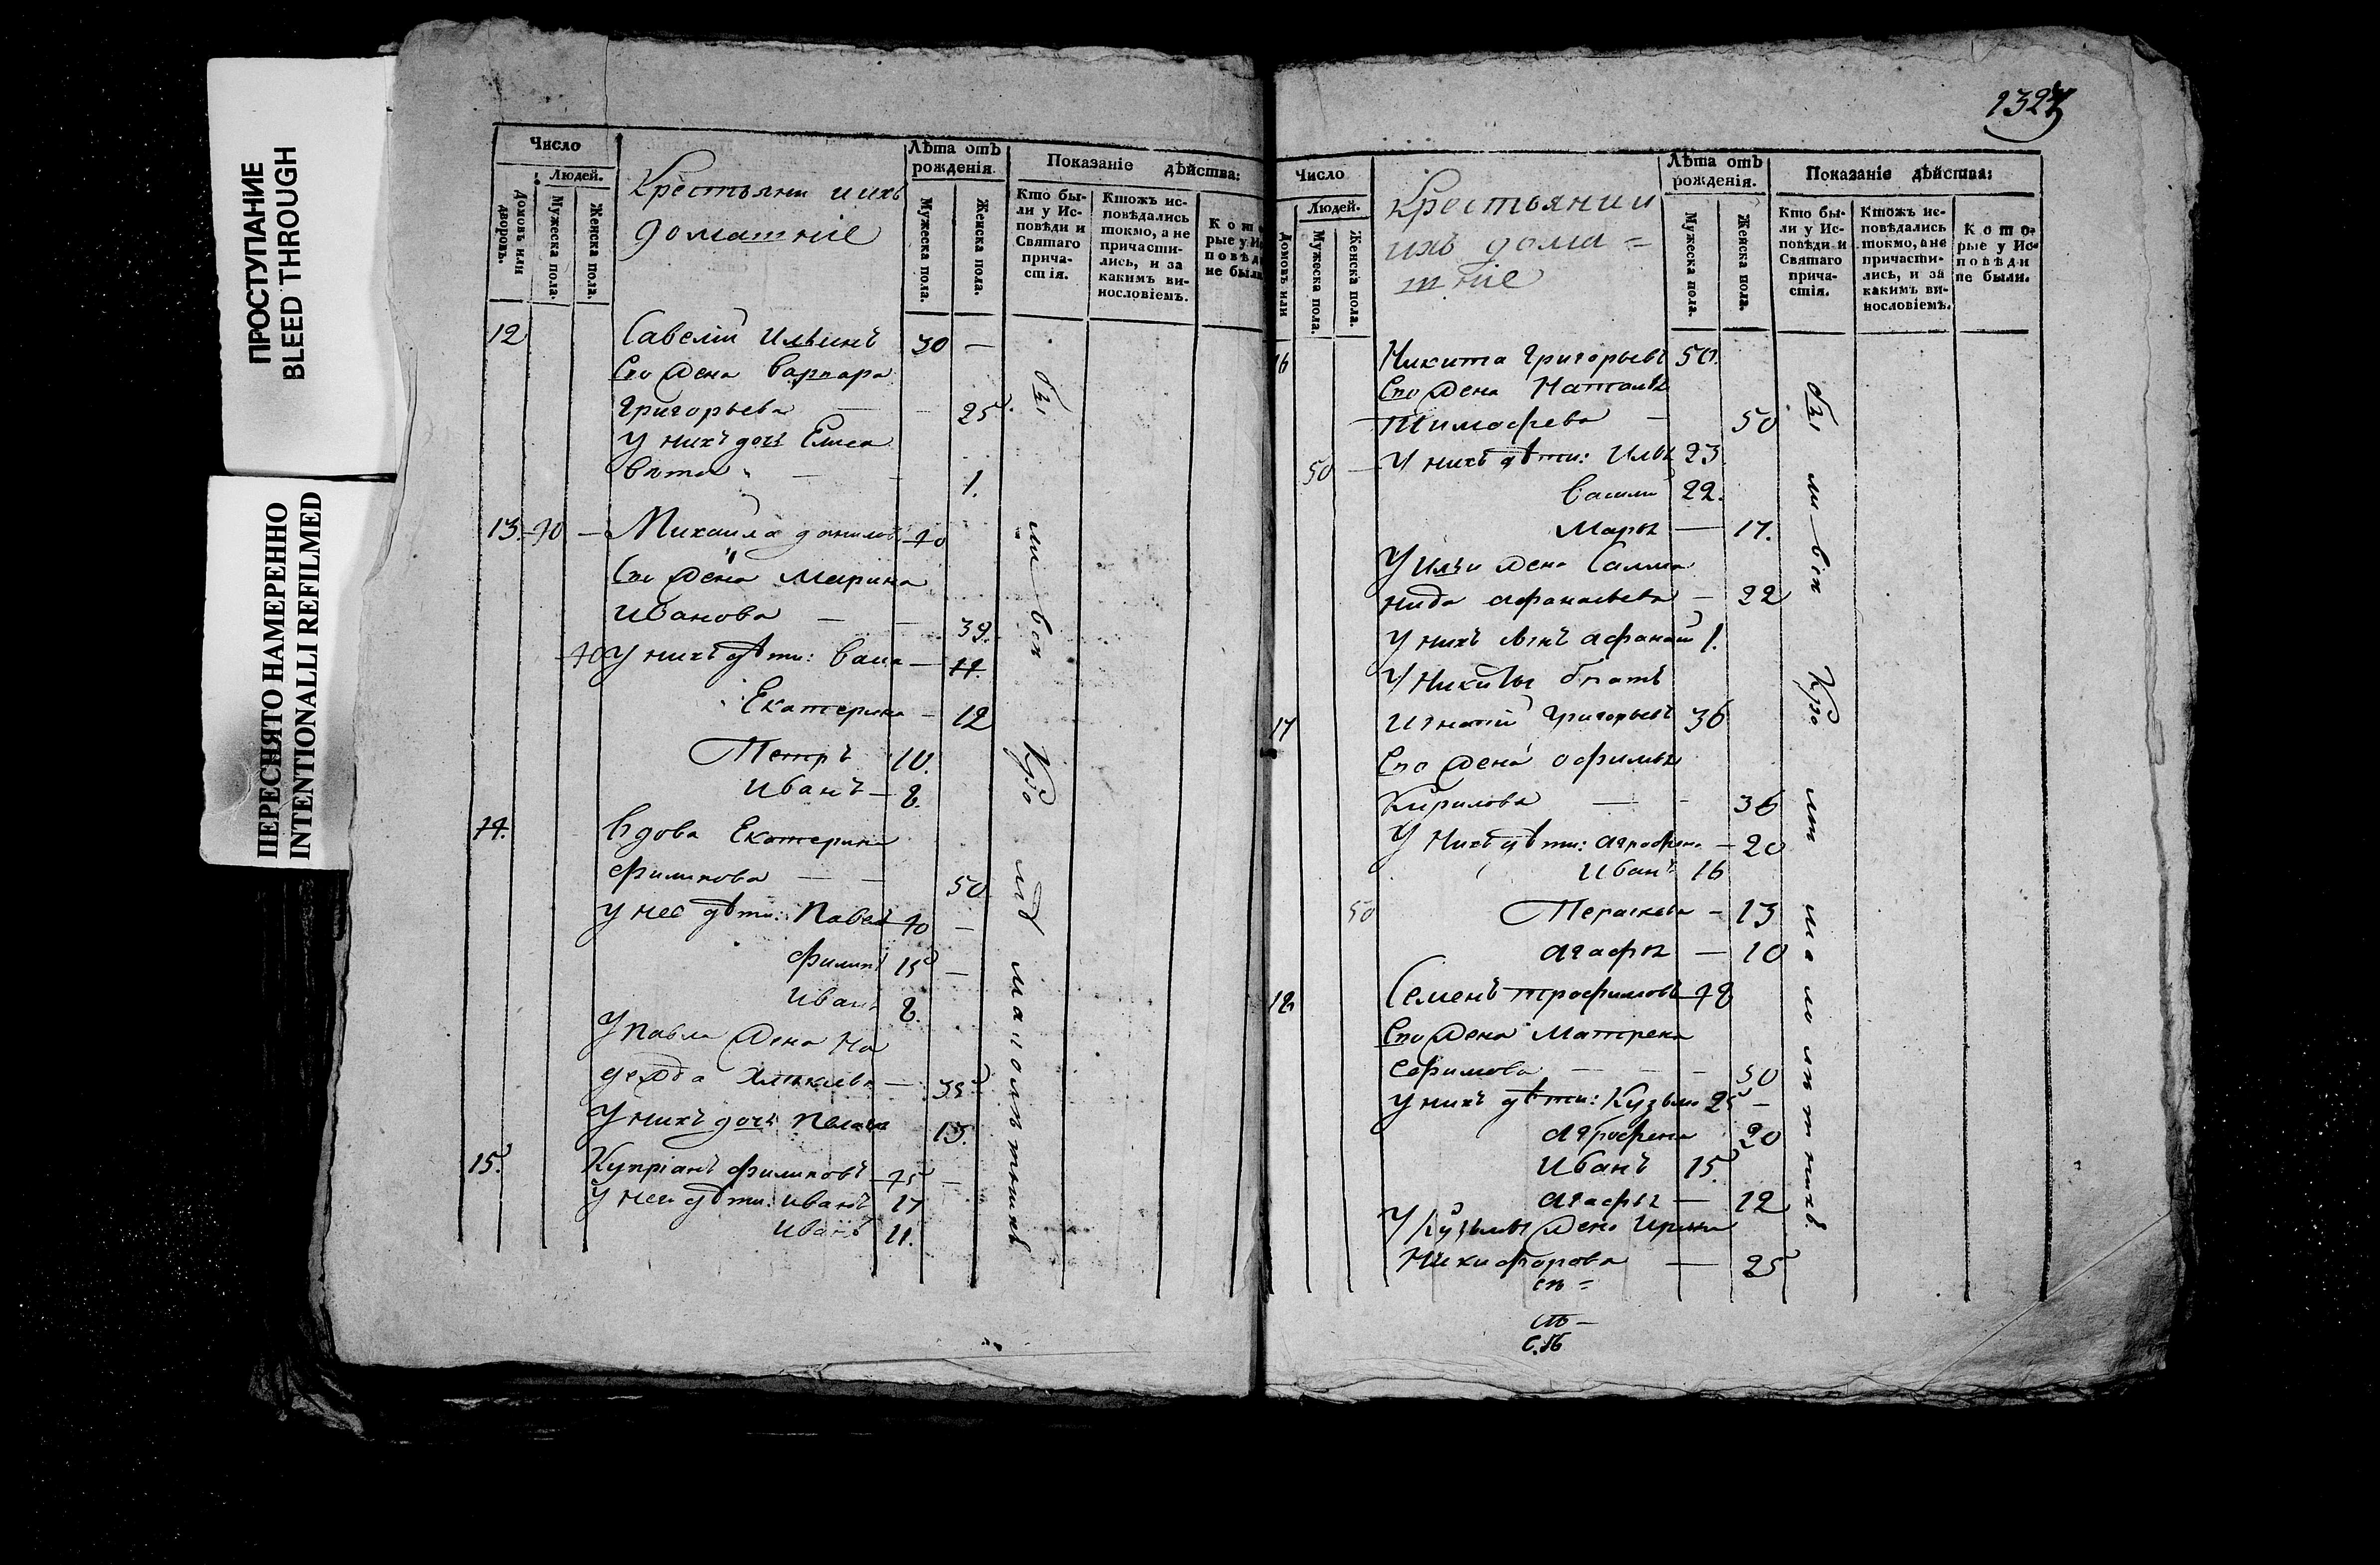 ПРОСТУПАНИЕ
BLEED THROUGH
ПЕРЕСНЯТО НАМЕРЕННО
INTENTIONALLI REFILMED
Число
Людей.
Домовъ или дворовъ.
Мужеска пола.
Женска пола.
Крестьяни и ихъ
домашніе
Лѣта отъ рожденія
Мужеска пола.
Женска пола.
Показаніе дѣйства:
Кто бы-
ли у Ис-
повѣди и
Святаго
прича-
стія.
Ктожъ ис-
повѣдались
токмо, а не
причасти-
лись, и за
какимъ ви-
нословіемъ.
Кото
рые у Ис
повѣд
не были
12 Савелій Ильинъ 30 —
Его жена Варвара
Григорьева — 25
У нихъ дочь Елиса
вета — 1.
13. 40 — Михаила Данилов 40
Его жена Марина
Иванова — 39.
40 У нихъ дѣти: Васа — 14.
Екатерина — 12
Петръ 10.
Иванъ — 8.
14. Вдова Екатерина
Филипова — 50.
У нее дѣти: Павелъ 40 —
Филипъ 15 —
Иванъ 8.
У Павла жена На
дежда — 35
У нихъ дочь Пелагея 13.
15. Купріанъ Филиповъ 45 —
У него дѣти: Иванъ 17
Иванъ 11.
бы ли вси Кро мѣ малолѣтныхъ
132
Число
Людей.
Домовъ или
Мужеска пола.
Женска пола.
Крестьяни и
ихъ дома=
шніе
Лѣта отъ рожденія.
Мужеска пола.
Женска пола.
Показаніе дѣйства:
Кто бы-
ли у Ис-
повѣди и
Святаго
прича-
стія.
Ктожъ ис-
повѣдались
токмо, а не
причасти-
лись, и за
какимъ ви-
нословіемъ.
Кото-
рые у Ис-
повѣди
не были.
16 Никита Григорьевъ 50.
Его жена Наталья
Тимофева — 50
50 — У нихъ дѣти: Илья 23.
Василій 22.
Марья — 17.
У Ильи жена Салма
нида Афанасьева — 22
У нихъ сынъ Афанасій 1.
У Никиты братъ
17 Игнатій Григорьевъ 36
Его жена Офимья
Кирилова — 36
У нихъ дѣти: Аграфена — 20
Иванъ 16
50 Пераскева — 13
Агафья — 10
18 Семенъ Трофимовъ 48
Его жена Матрена
Ефимова — 50
У нихъ дѣти: Кузьма 25 —
Аграфена 20
Иванъ 15.
Агафья — 12
У Кузьмы жена Ирина
Никифорова — 25
бы ли вси Кро мѣ малолѣтнихъ.